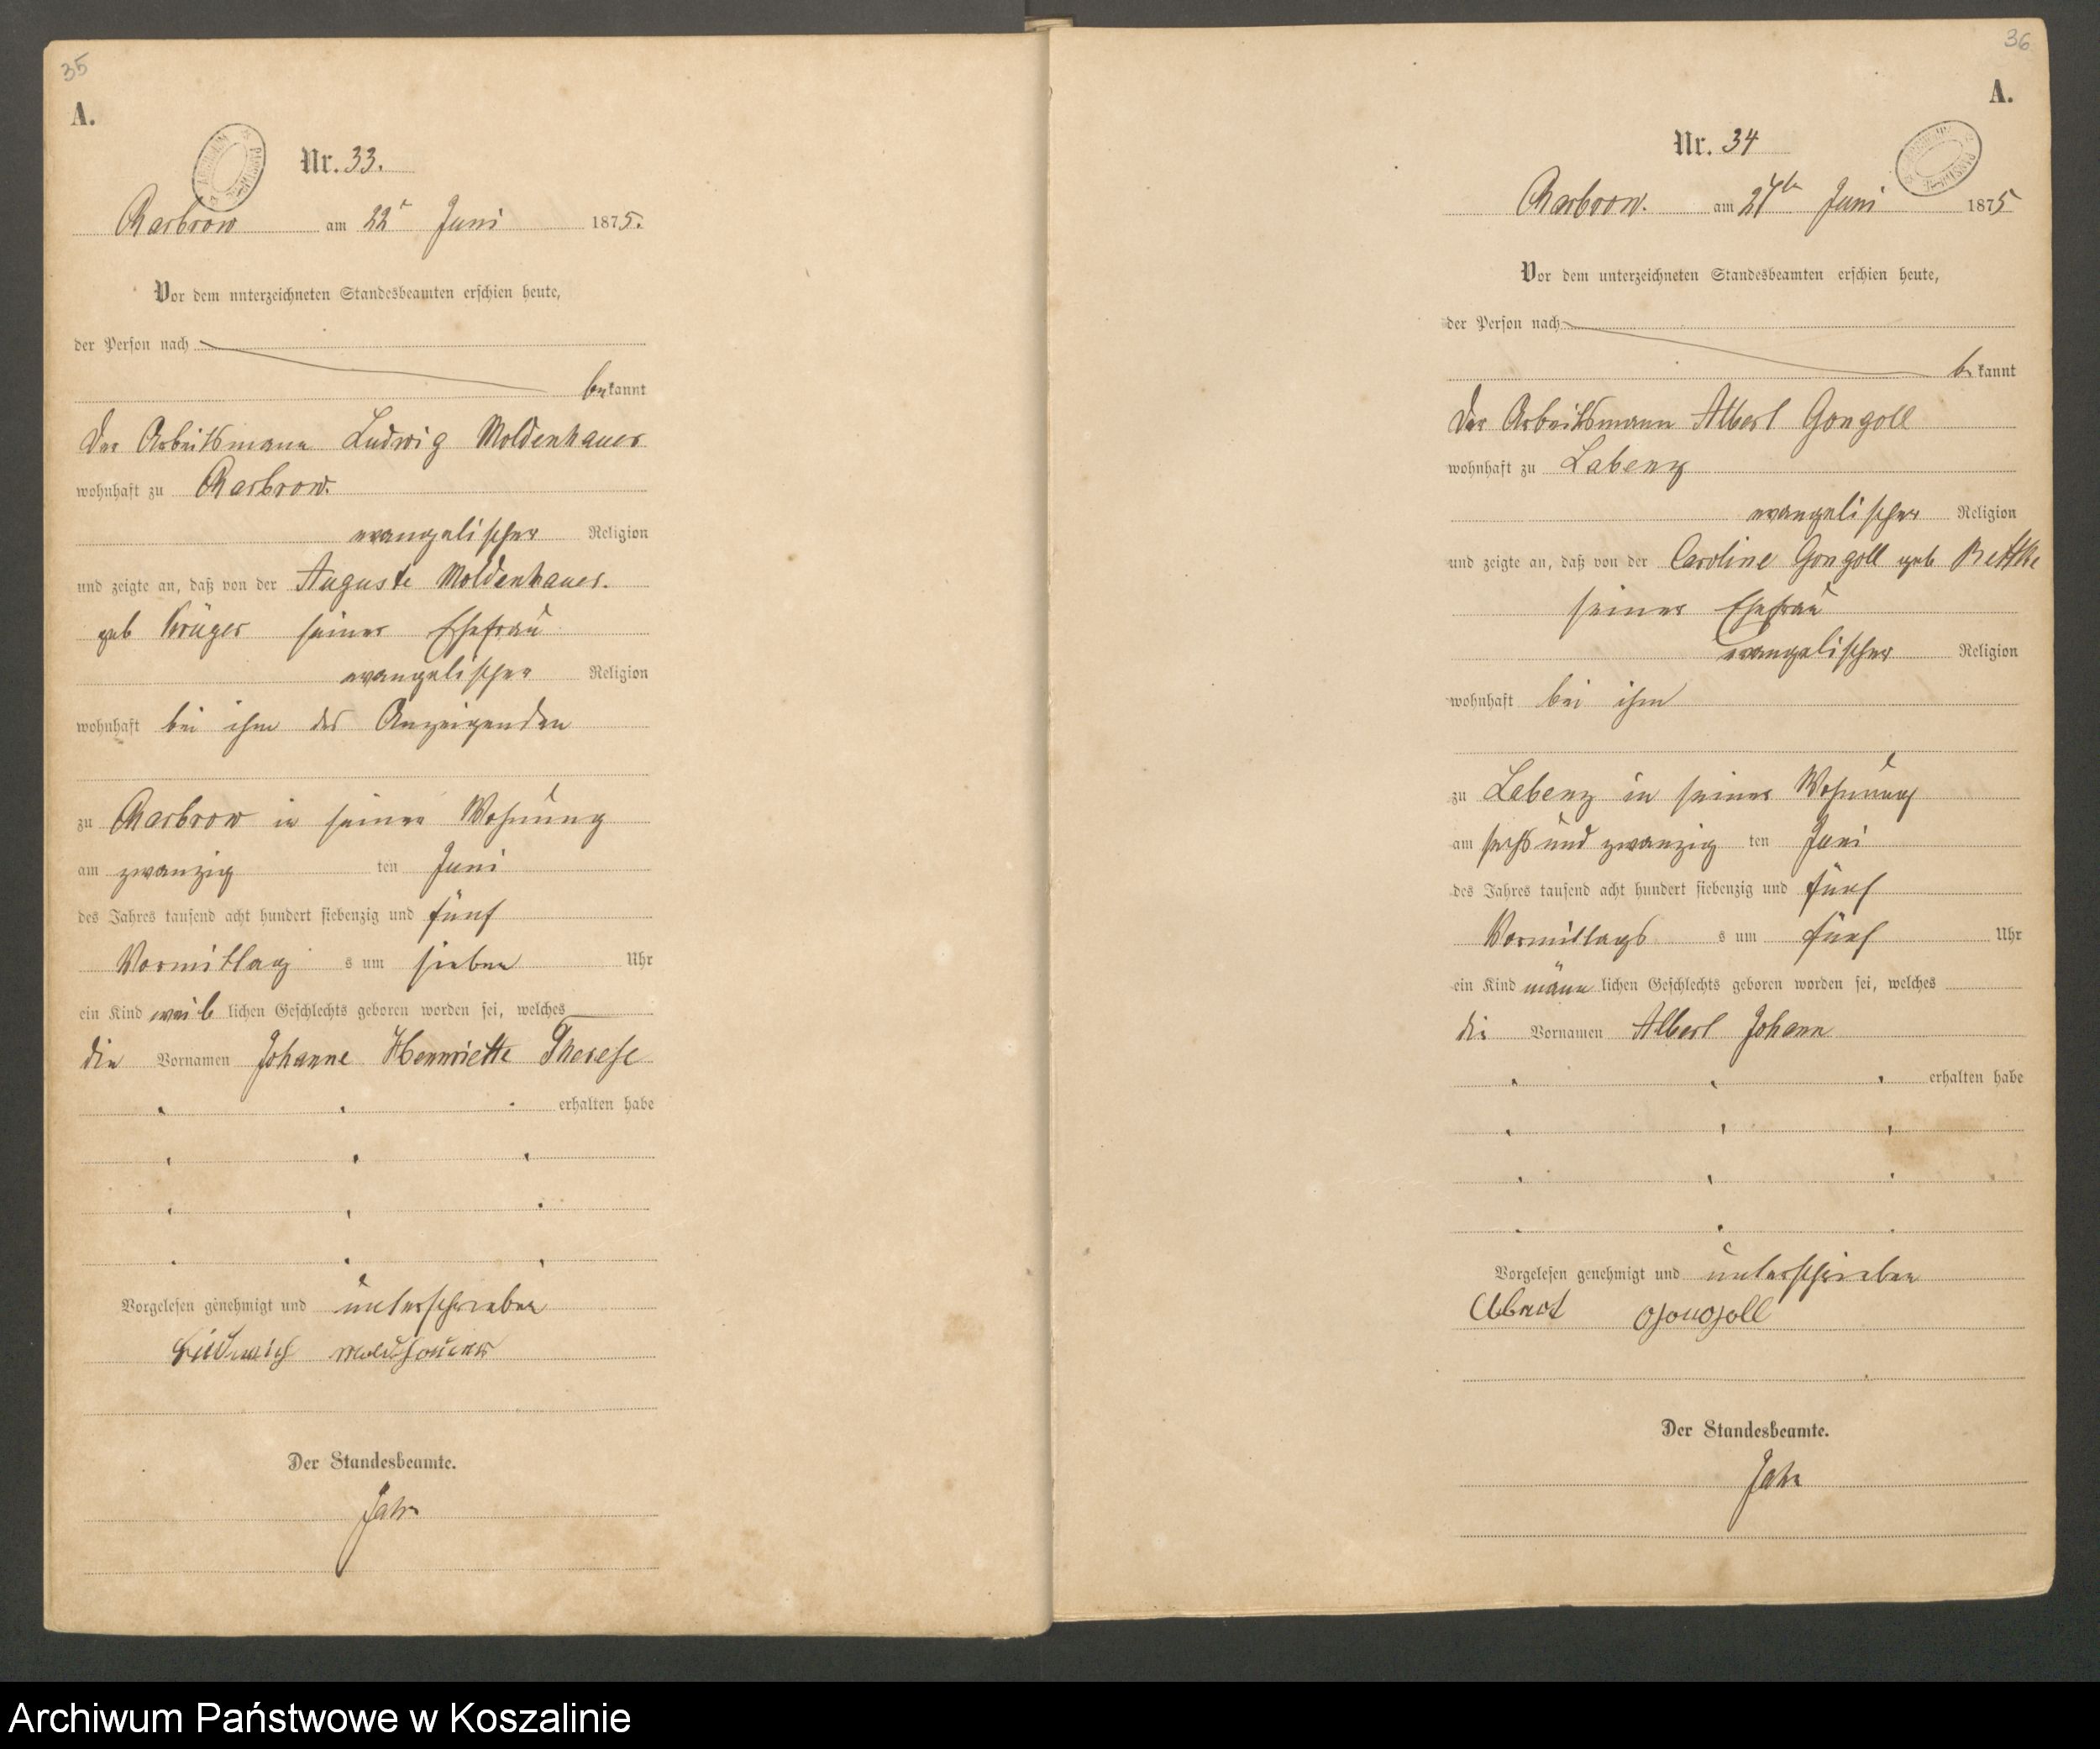 35
A.
Nr. 33.
Rarbrow am 22t Juni 1875.
Vor dem unterzeichneten Standesbeamten erschien heute,
der Person nach
bekannt
Der Arbeitsmann Ludwig Moldenhauer
wohnhaft zu Rarbrow.
evangelischer Religion
und zeigte an, daß von der Auguste Moldenhauer.
geb Krüger seiner Ehefrau
evangelischer Religion
wohnhaft bei ihm des Anzeigenden
zu Rarbrow in seiner Wohnung
am zwanzig ten Juni
des Jahres tausend acht hundert siebenzig und fünf
Vormittag s um sieben Uhr
ein Kind weib lichen Geschlechts geboren worden sei, welches
die Vornamen Johanne Hennriette Therese
erhalten habe
Vorgelesen genehmigt und unterschrieben
Ludwich Moldhauer
Der Standesbeamte.
Jahr
36
A.
Nr. 34
Rarbrow. am 27te Juni 1875
Vor dem unterzeichneten Standesbeamten erschien heute,
der Person nach
bekannt
Der Arbeitsmann Albert Gongoll
wohnhaft zu Labenz
evangelischer Religion
und zeigte an, daß von der Caroline Gongoll geb Bettke
seiner Ehefrau
evangelischer Religion
wohnhaft bei ihm
zu Labenz in seiner Wohnung
am sechs und zwanzig ten Juni
des Jahres tausend acht hundert siebenzig und fünf
Vormittags s um fünf Uhr
ein Kind männ lichen Geschlechts geboren worden sei, welches
die Vornamen Albert Johann
erhalten habe
Vorgelesen genehmigt und unterschrieben
Albert Gongoll
Der Standesbeamte.
Jahr
Archiwum Państwowe w Koszalinie